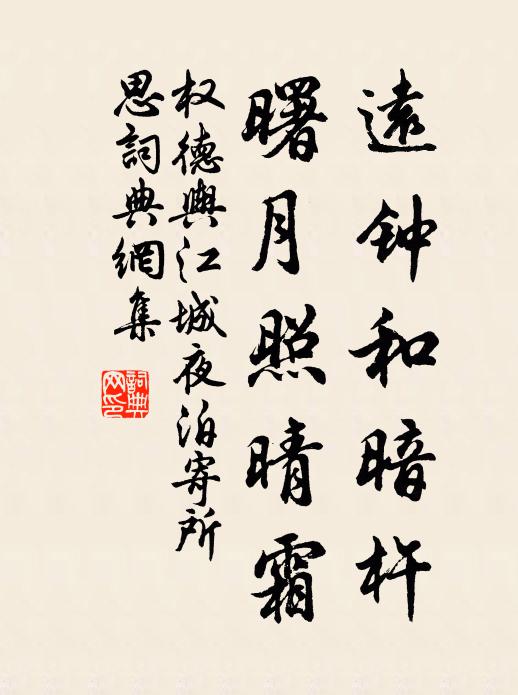 遠钟和暗杵
曙月照晴霜
权德輿江城夜泊寄所
思詞典網集
詞典
网印